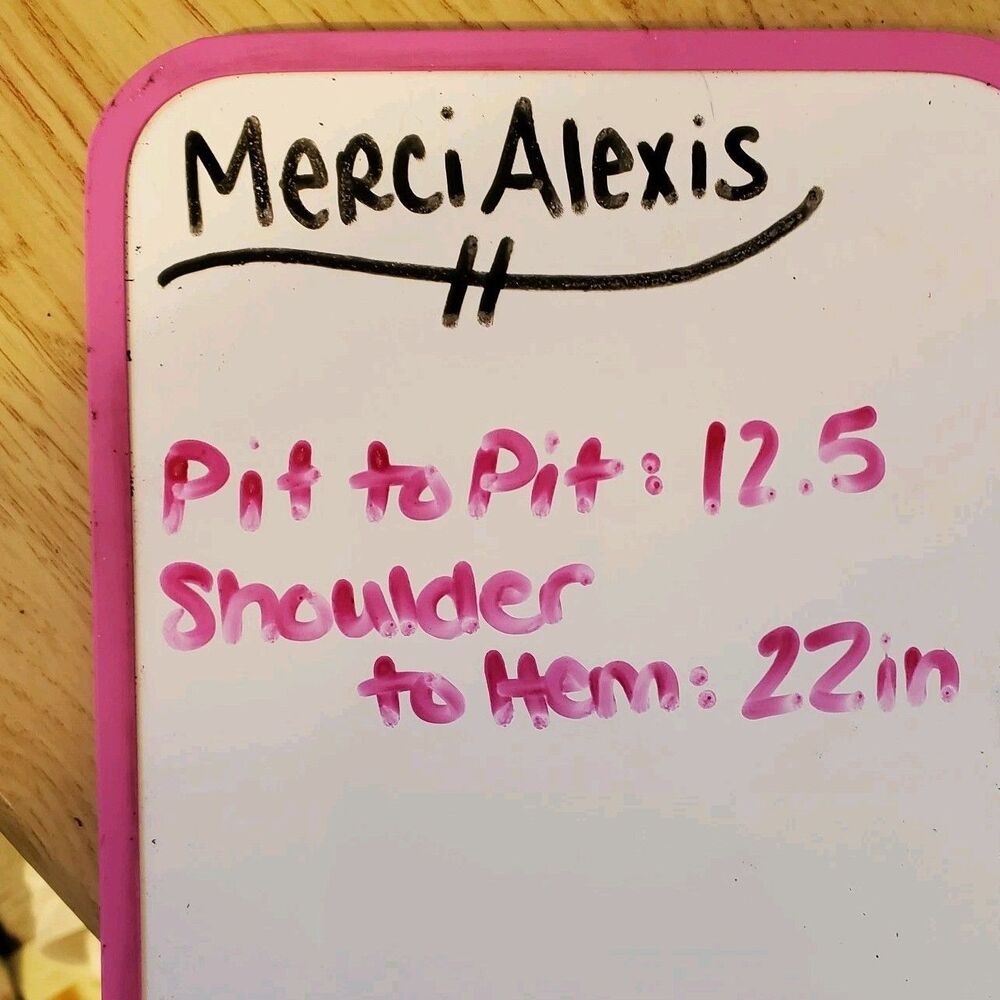 Merci Alexis
Pit to Pit: 12.5
Shoulder
to Hem: 22in